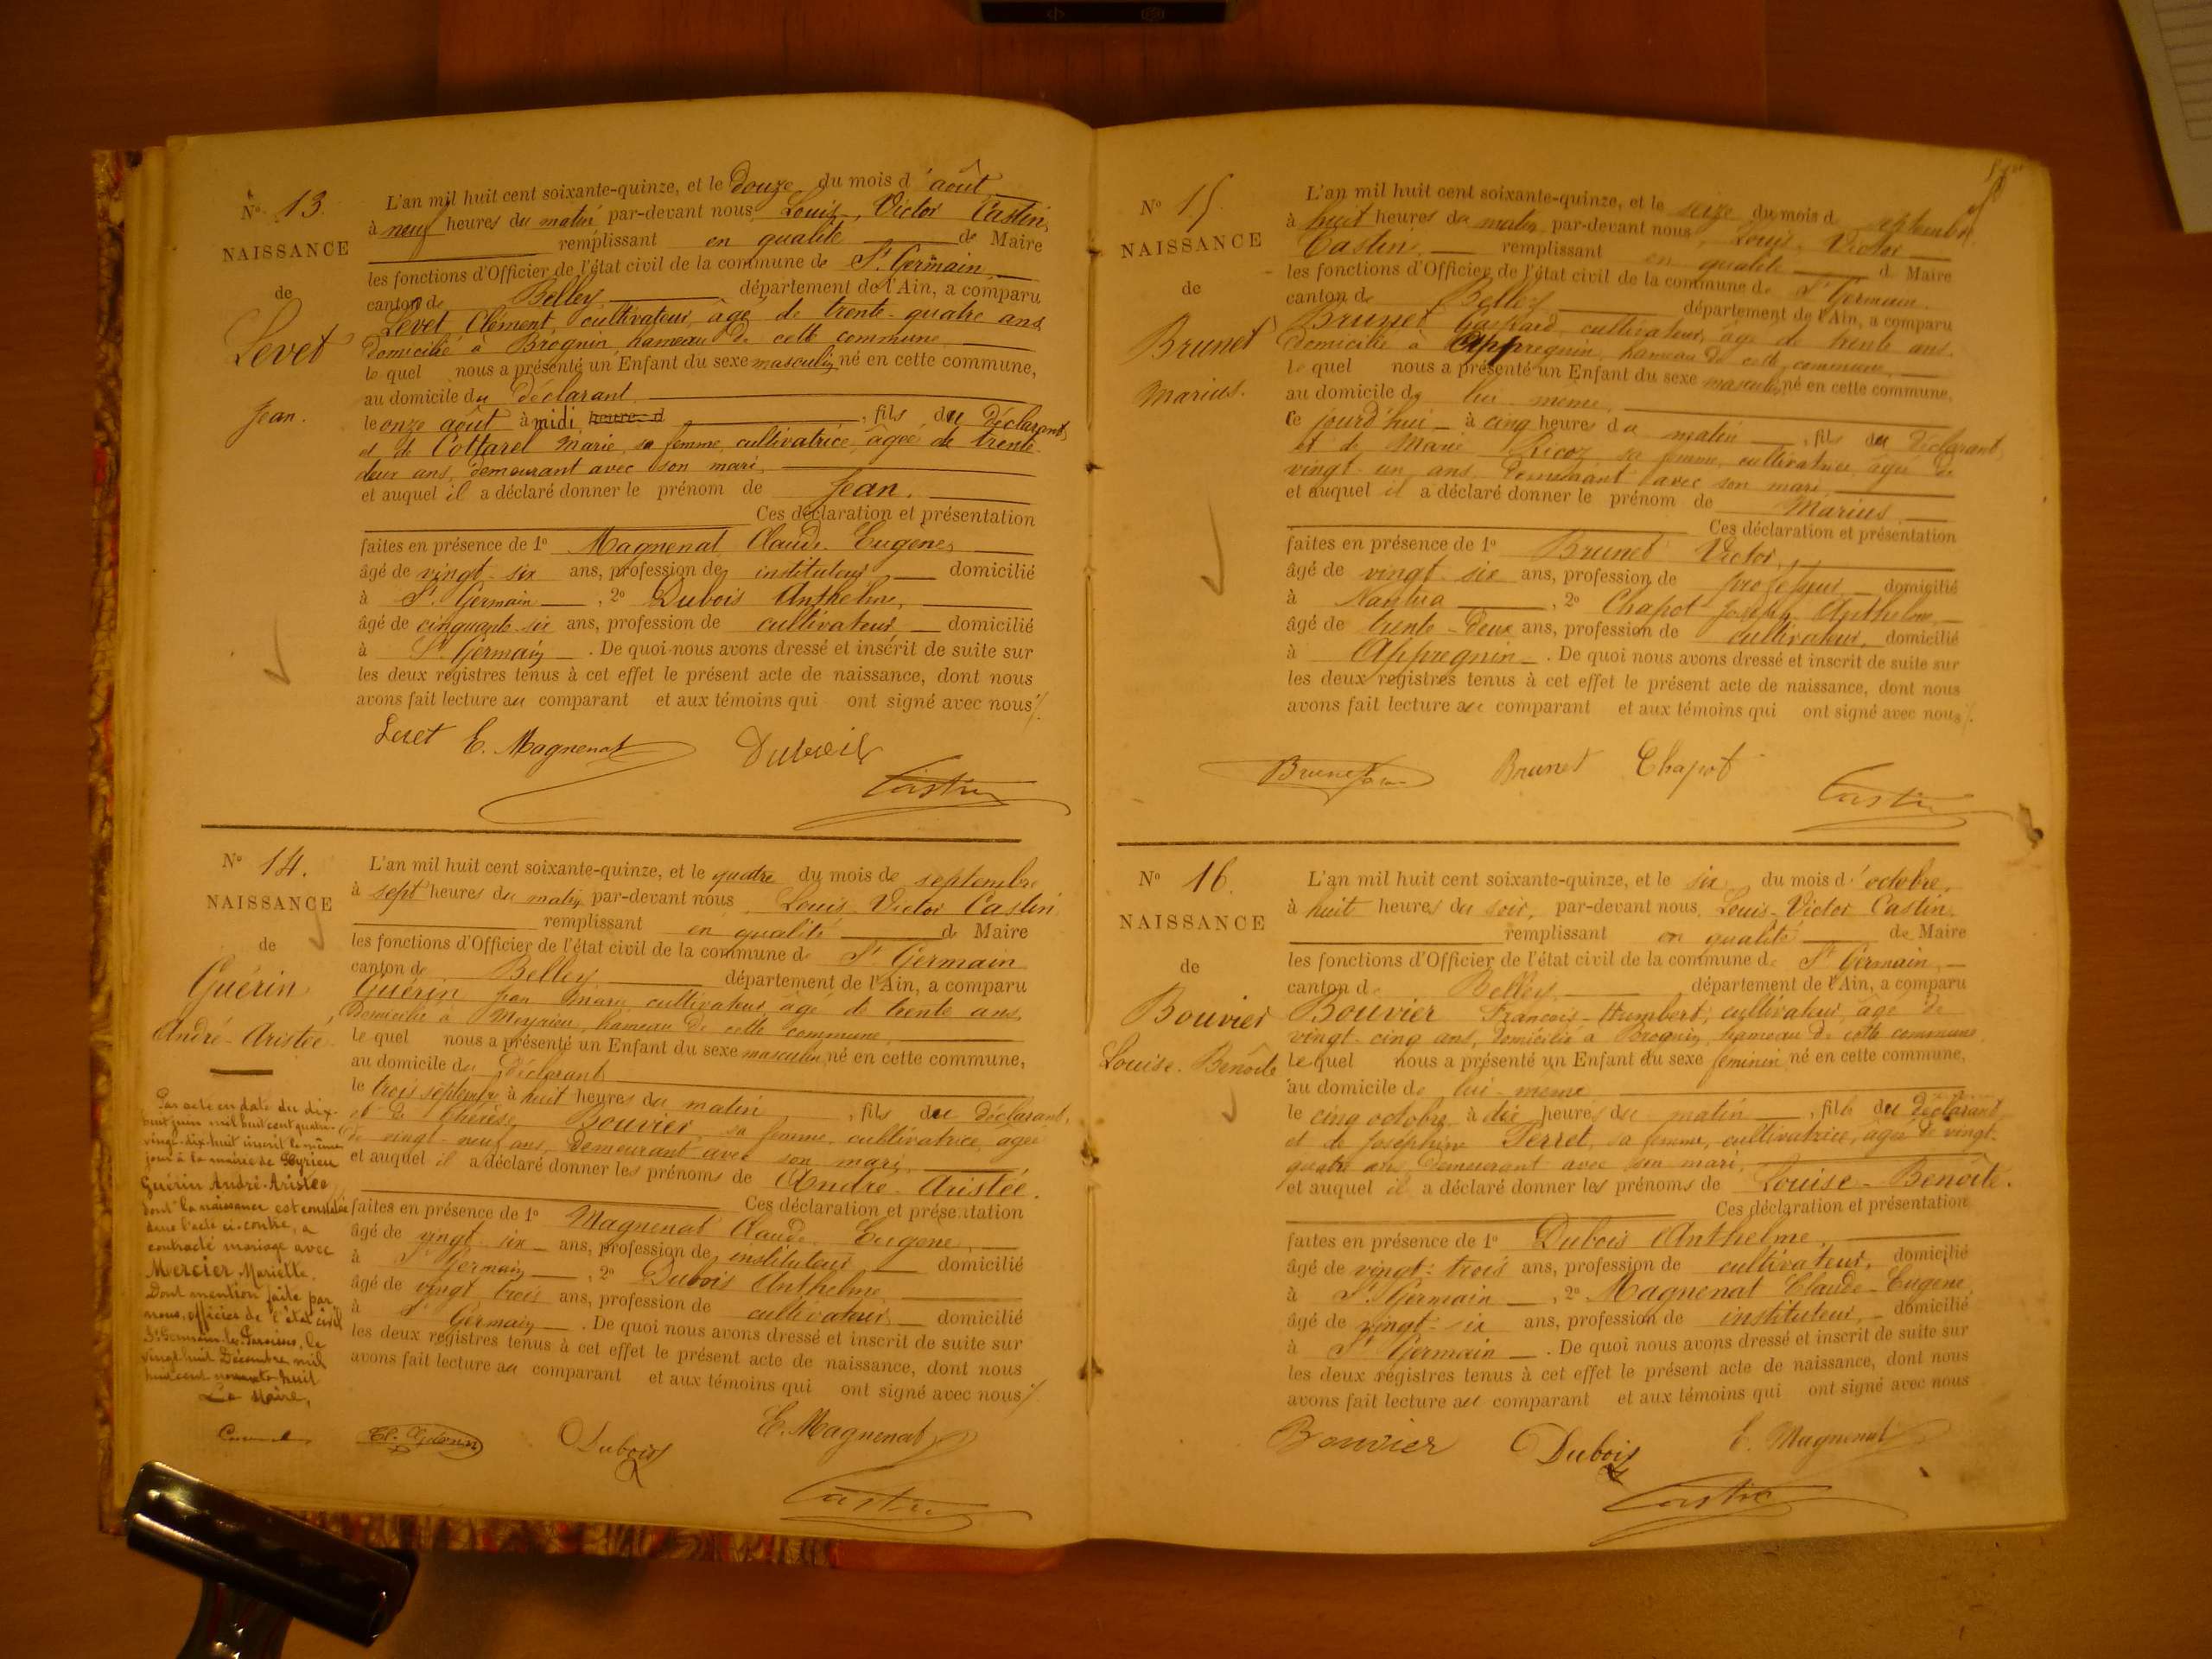 N° 13.
NAISSANCE
de
Levet
Jean.
L'an mil huit cent soixante-quinze, et le douze du mois d'août
à neuf heures du matin par-devant nous Louis, Victor Castin,
remplissant en qualité de Maire
les fonctions d'Officier de l'état civil de la commune de St Germain
canton de Belley département de l'Ain, a comparu
Levet Clément, cultivateur, âgé de trente-quatre ans,
domicilié à Brognin, hameau de cette commune
lequel nous a présenté un Enfant du sexe masculin, né en cette commune,
au domicile du déclarant
le onze août à midi heure d , fils du déclarant,
et de Cottarel Marie, sa femme, cultivatrice, âgée de trente-
deux ans, demeurant avec son mari,
et auquel il a déclaré donner le prénom de Jean.
Ces déclaration et présentation
faites en présence de 1° Magnenat Claude-Eugène,
âgé de vingt-six ans, profession de instituteur domicilié
à St Germain , 2° Dubois Anthelme,
âgé de cinquante-six ans, profession de cultivateur domicilié
à St Germain . De quoi nous avons dressé et inscrit de suite sur
les deux registres tenus à cet effet le présent acte de naissance, dont nous
avons fait lecture au comparant et aux témoins qui ont signé avec nous
Levet E. Magnenat Dubois
Castin
N° 14.
NAISSANCE
de
Guérin
André-Aristée
Par acte en date du dix-
huit juin mil huit cent quatre-
vingt-dix-huit inscrit le même
jour à la mairie de
Guérin André-Aristée
dont la naissance est constatée
dans l'acte ci-contre, a
contracté mariage avec
Mercier Mariette.
Dont mention faite par
nous, officier de l'état civil
St Germain-les-Paroisses, le
vingt-huit Décembre mil
huit cent nonante-huit
Le Maire,
L'an mil huit cent soixante-quinze, et le quatre du mois de septembre
à sept heures du matin par-devant nous Louis-Victor Castin
remplissant en qualité de Maire
les fonctions d'Officier de l'état civil de la commune de St Germain
canton de Belley département de l'Ain, a comparu
Guérin Jean Marie, cultivateur, âgé de trente ans,
domicilié à Meyrieu, hameau de cette commune
lequel nous a présenté un Enfant du sexe masculin, né en cette commune,
au domicile du déclarant
le trois septembre à huit heures du matin , fils du déclarant,
et de Thérèse Bouvier, sa femme, cultivatrice, âgée
de vingt-neuf ans, demeurant avec son mari,
et auquel il a déclaré donner les prénoms de André-Aristée.
Ces déclaration et présentation
faites en présence de 1° Magnenat Claude-Eugène,
âgé de vingt-six ans, profession de instituteur domicilié
à St Germain , 2° Dubois Anthelme
âgé de vingt-trois ans, profession de cultivateur domicilié
à St Germain . De quoi nous avons dressé et inscrit de suite sur
les deux registres tenus à cet effet le présent acte de naissance, dont nous
avons fait lecture au comparant et aux témoins qui ont signé avec nous
Dubois E. Magnenat
Castin
N° 15.
NAISSANCE
de
Brunet
Marius.
L'an mil huit cent soixante-quinze, et le seize du mois de septembre
à huit heures du matin par-devant nous, Louis-Victor
Castin, remplissant en qualité de Maire
les fonctions d'Officier de l'état civil de la commune de St Germain
canton de Belley département de l'Ain, a comparu
Brunet Gaspard, cultivateur, âgé de trente ans.
domicilié à Appregnin, hameau de cette commune,
lequel nous a présenté un Enfant du sexe masculin, né en cette commune,
au domicile de lui-même,
ce jourd'hui à cinq heures du matin , fils du déclarant,
et de Marie Ricoz, sa femme, cultivatrice, âgée de
vingt-un ans, demeurant avec son mari,
et auquel il a déclaré donner le prénom de Marius
Ces déclaration et présentation
faites en présence de 1° Brunet Victor,
âgé de vingt-six ans, profession de professeur, domicilié
à Nantua , 2° Chapot Joseph-Anthelme,
âgé de trente-deux ans, profession de cultivateur, domicilié
à Appregnin . De quoi nous avons dressé et inscrit de suite sur
les deux registres tenus à cet effet le présent acte de naissance, dont nous
avons fait lecture au comparant et aux témoins qui ont signé avec nous
Brunet Brunet Chapot
Castin
N° 16.
NAISSANCE
de
Bouvier
Louise-Benoîte
L'an mil huit cent soixante-quinze, et le six du mois d'octobre,
à huit heures du soir, par-devant nous, Louis-Victor Castin.
remplissant en qualité de Maire
les fonctions d'Officier de l'état civil de la commune de St Germain,
canton de Belley, département de l'Ain, a comparu
Bouvier François-Humbert, cultivateur, âgé de
vingt-cinq ans, domicilié à Brognin, hameau de cette commune
lequel nous a présenté un Enfant du sexe féminin, né en cette commune,
au domicile de lui-même
le cinq octobre à dix heures du matin , fille du déclarant
et de Joséphine Perret, sa femme, cultivatrice, âgée de vingt-
quatre ans, demeurant avec son mari,
et auquel il a déclaré donner les prénoms de Louise-Benoîte.
Ces déclaration et présentation
faites en présence de 1° Dubois Anthelme,
âgé de vingt-trois ans, profession de cultivateur, domicilié
à St Germain , 2° Magnenat Claude-Eugène,
âgé de vingt-six ans, profession de instituteur, domicilié
à St Germain . De quoi nous avons dressé et inscrit de suite sur
les deux registres tenus à cet effet le présent acte de naissance, dont nous
avons fait lecture au comparant et aux témoins qui ont signé avec nous
Bouvier Dubois E. Magnenat
Castin